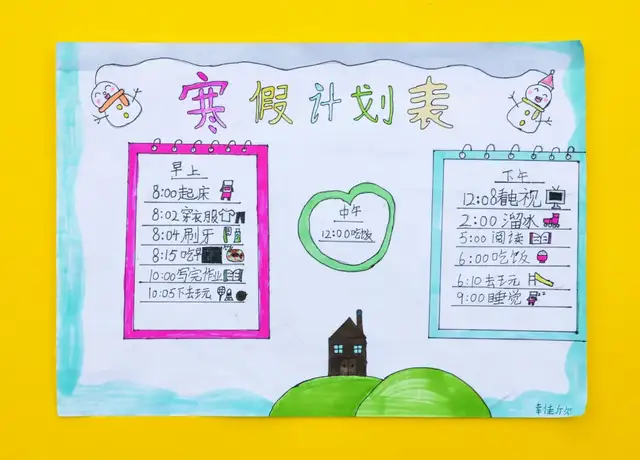 寒假计划表
早上
8:00起床
8:02穿衣服
8:04刷牙
8:15吃早
10:00写完作业
10:05下去玩
中午
12:00吃饭
下午
12:08看电视
2:00 溜冰
5:00 阅读
6:00吃饭
6:10去玩
9:00睡觉